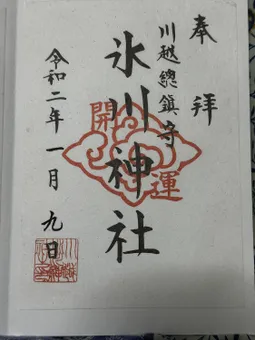 奉拝
川越總鎮守
氷川神社
開運
令和二年一月九日